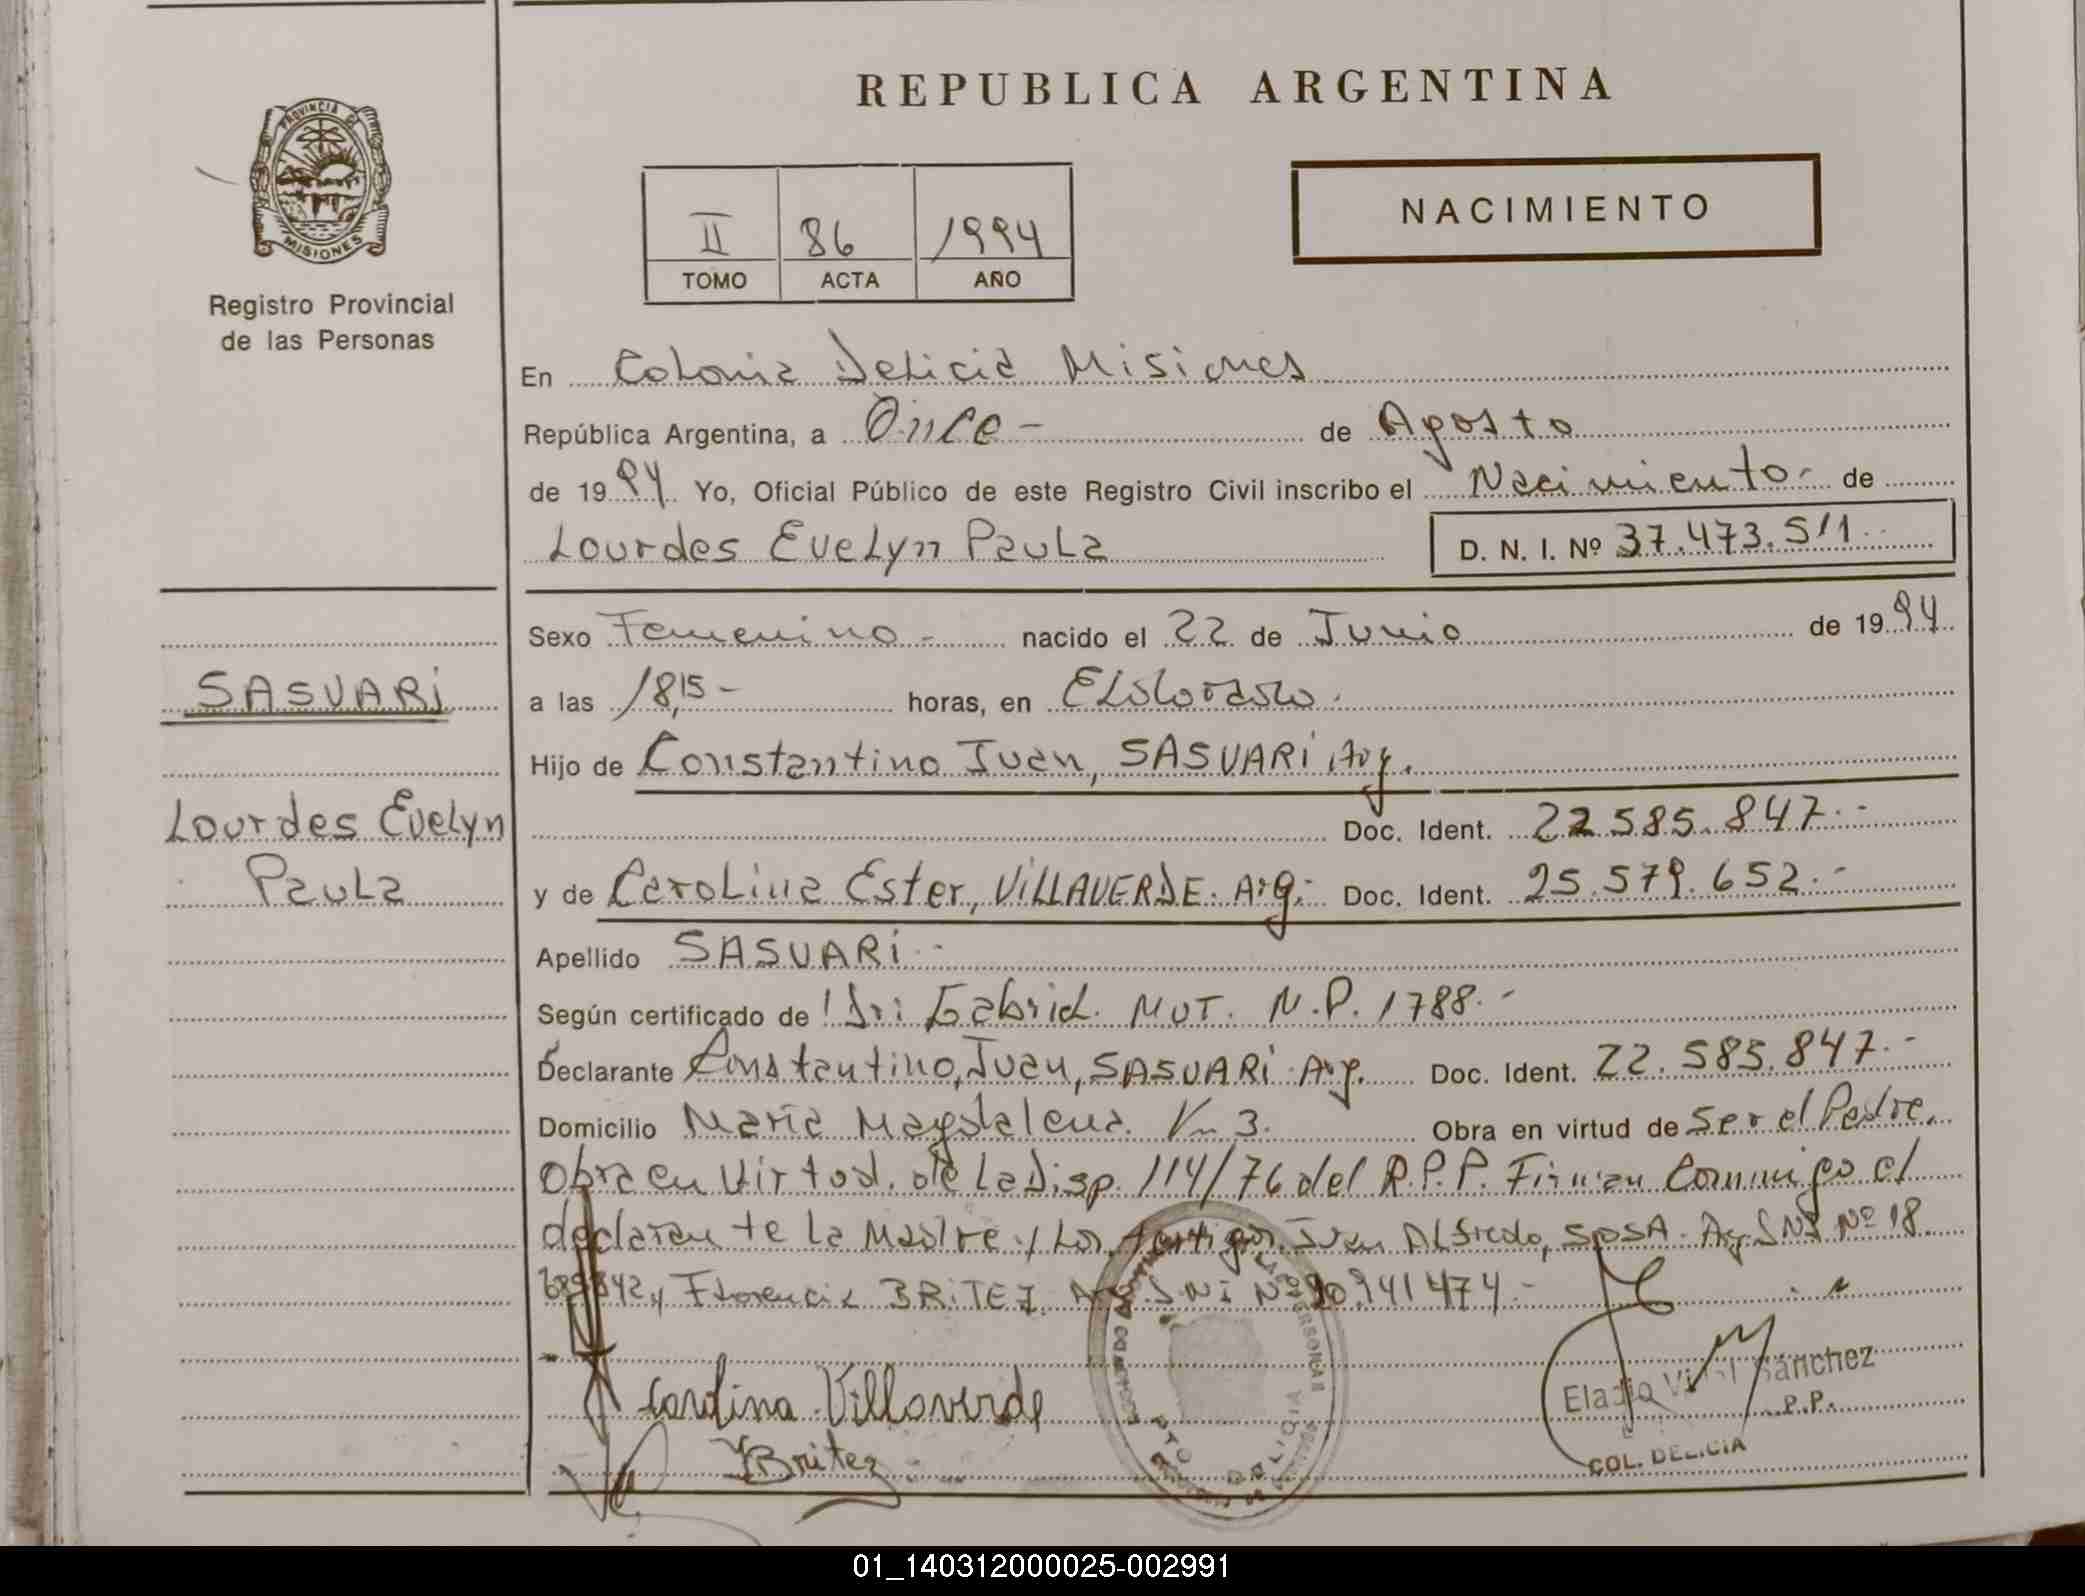 REPUBLICA ARGENTINA
PROVINCIA DE
MISIONES
Registro Provincial
de las Personas
II 86 1994
TOMO ACTA AÑO
NACIMIENTO
En Colonia Delicia Misiones
República Argentina, a Once - de Agosto
de 1994 Yo, Oficial Público de este Registro Civil inscribo el Nacimiento - de
Lourdes Evelyn Paula D. N. I. Nº 37.473.511
SASUARi
Lourdes Evelyn
Paula
Sexo Femenino - nacido el 22 de Junio de 1994
a las 18,15 - horas, en Eldorado.
Hijo de Constantino Juan, SASUARi Arg.
Doc. Ident. 22.585.847.-
y de Carolina Ester, ViLLAVERDE. Arg.- Doc. Ident. 25.579.652.-
Apellido SASUARi -
Según certificado de Gabriel. MUT. N.P. 1788.-
Declarante Constantino, Juan, SASUARi Arg. Doc. Ident. 22.585.847.-
Domicilio Maria Magdalena. Km 3. Obra en virtud de Ser el Padre.
Obra en Virtud. de La Disp. 114/76 del R.P.P. Firman Conmigo el
declarante La Madre y Los testigos, Juan ALfredo, SOSA. Arg DNI Nº 18
y Florencia BRiTEZ. Arg DNi Nº 20.941474 -
Carolina Villaverde
Britez
Eladio Vidal Sánchez
R.P.P.
COL. DELICIA
01_140312000025-002991